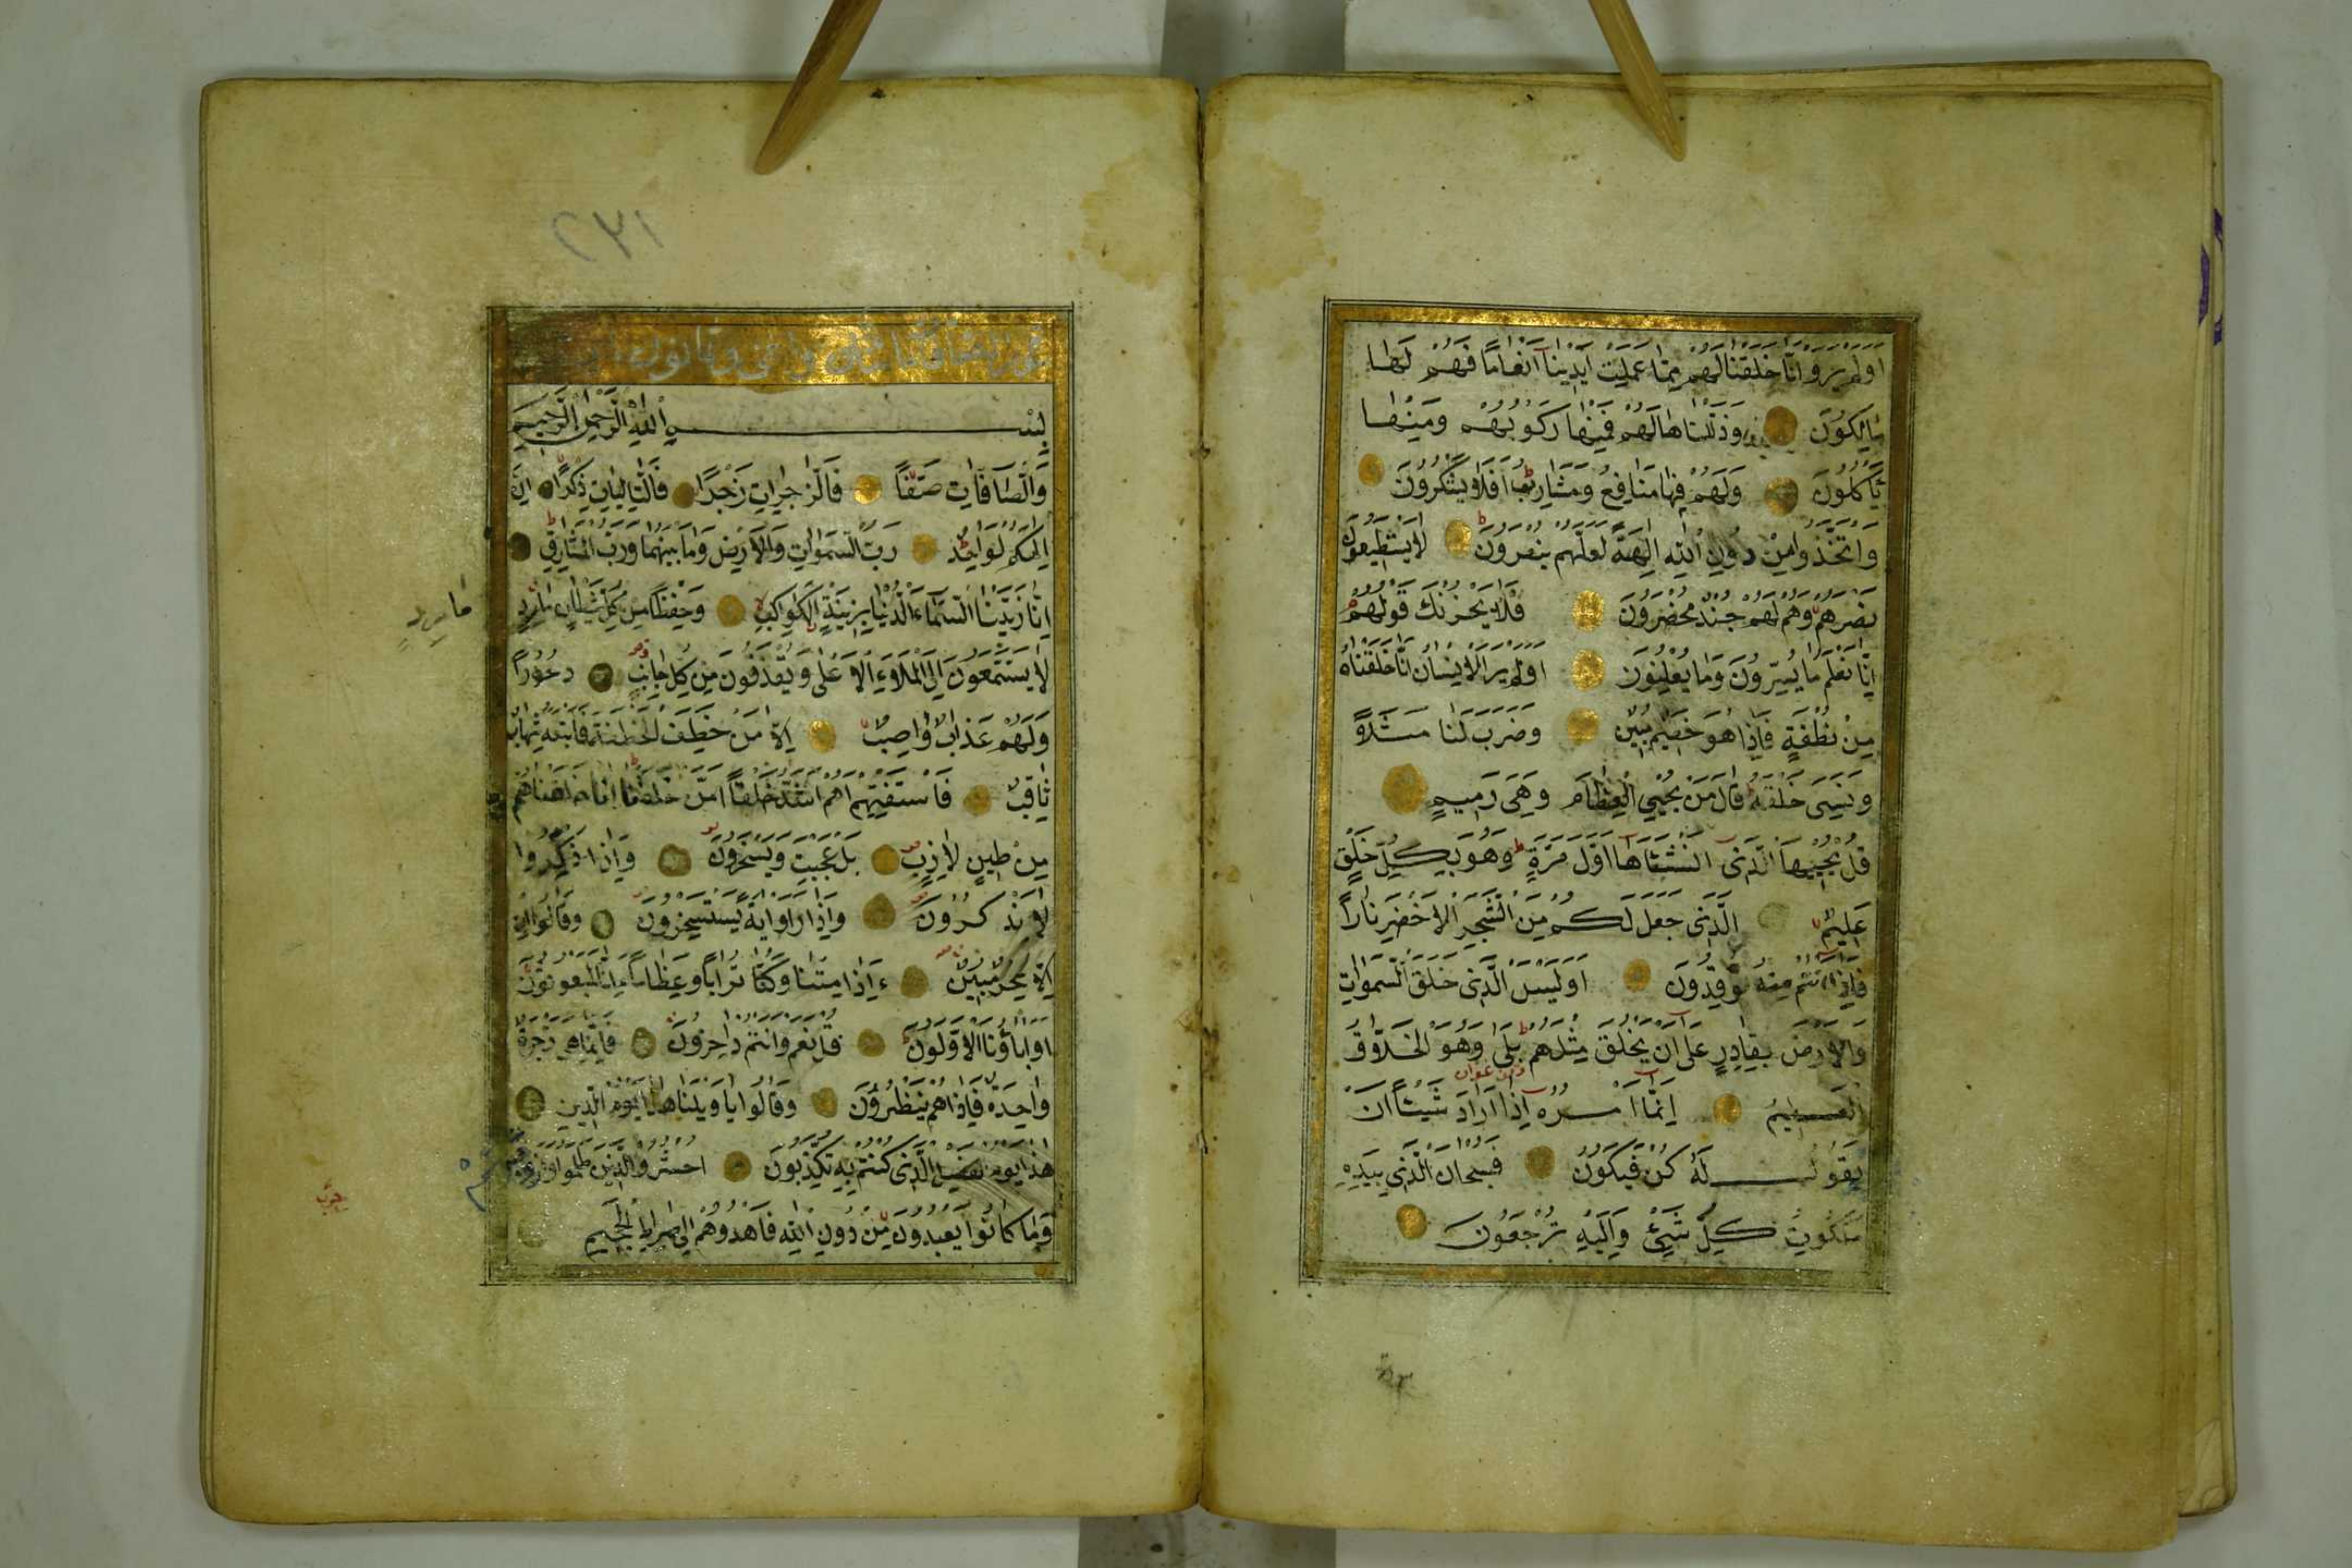 اولم يروا انا خلقنا لهم مما عملت ايدينا انعاما فهم لها
مالكون وذللناها لهم فمنها ركوبهم ومنها
ياكلون ولهم فيها منافع ومشارب افلا يشكرون
واتخذوا من دون الله الهة لعلهم ينصرون لا يستطيعون
نصرهم وهم لهم جند محضرون فلا يحزنك قولهم
انا نعلم ما يسرون وما يعلنون اولم ير الانسان انا خلقناه
من نطفة فاذا هو خصيم مبين وضرب لنا مثلا
ونسى خلقه قال من يحيي العظام وهي رميم
قل يحييها الذى انشاها اول مرة وهو بكل خلق
عليم الذى جعل لكم من الشجر الاخضر نارا
فاذا انتم منه توقدون اوليس الذى خلق السموات
والارض بقادر على ان يخلق مثلهم بلى وهو الخلاق
العليم انما امره اذا اراد شيئا ان
يقول له كن فيكون فسبحان الذي بيده
ملكوت كل شيئ واليه ترجعون
٢٣١
بسم الله الرحمن الرحيم
والصافات صفا فالزاجرات زجرا فالتاليات ذكرا ان
الهكم لواحد رب السموات والارض وما بينهما ورب المشارق
انا زينا السماء الدنيا بزينة الكواكب وحفظا من كل شيطان مارد
مارد
لا يستمعون الى الملاء الاعلى ويقذفون من كل جانب دحورا
ولهم عذاب واصب الا من خطف الخطفة فاتبعه شهاب
ثاقب فاستفتهم اهم اشد خلقا امن خلقنا انا خلقناهم
من طين لازب بل عجبت ويسخرون واذا ذكروا
لا يذكرون واذا راوا اية يستسخرون وقالوا ان هذا
الا سحر مبين ءاذا متنا وكنا ترابا وعظاما ءانا لمبعوثون
اواباؤنا الاولون قل نعم وانتم داخرون فانما هى زجرة
واحدة فاذا هم ينظرون وقالوا يا ويلنا هذا يوم الدين
هذا يوم الفصل الذى كنتم به تكذبون احشروا الذين ظلموا وازواجهم
وما كانوا يعبدون من دون الله فاهدوهم الى صراط الجحيم
حزب